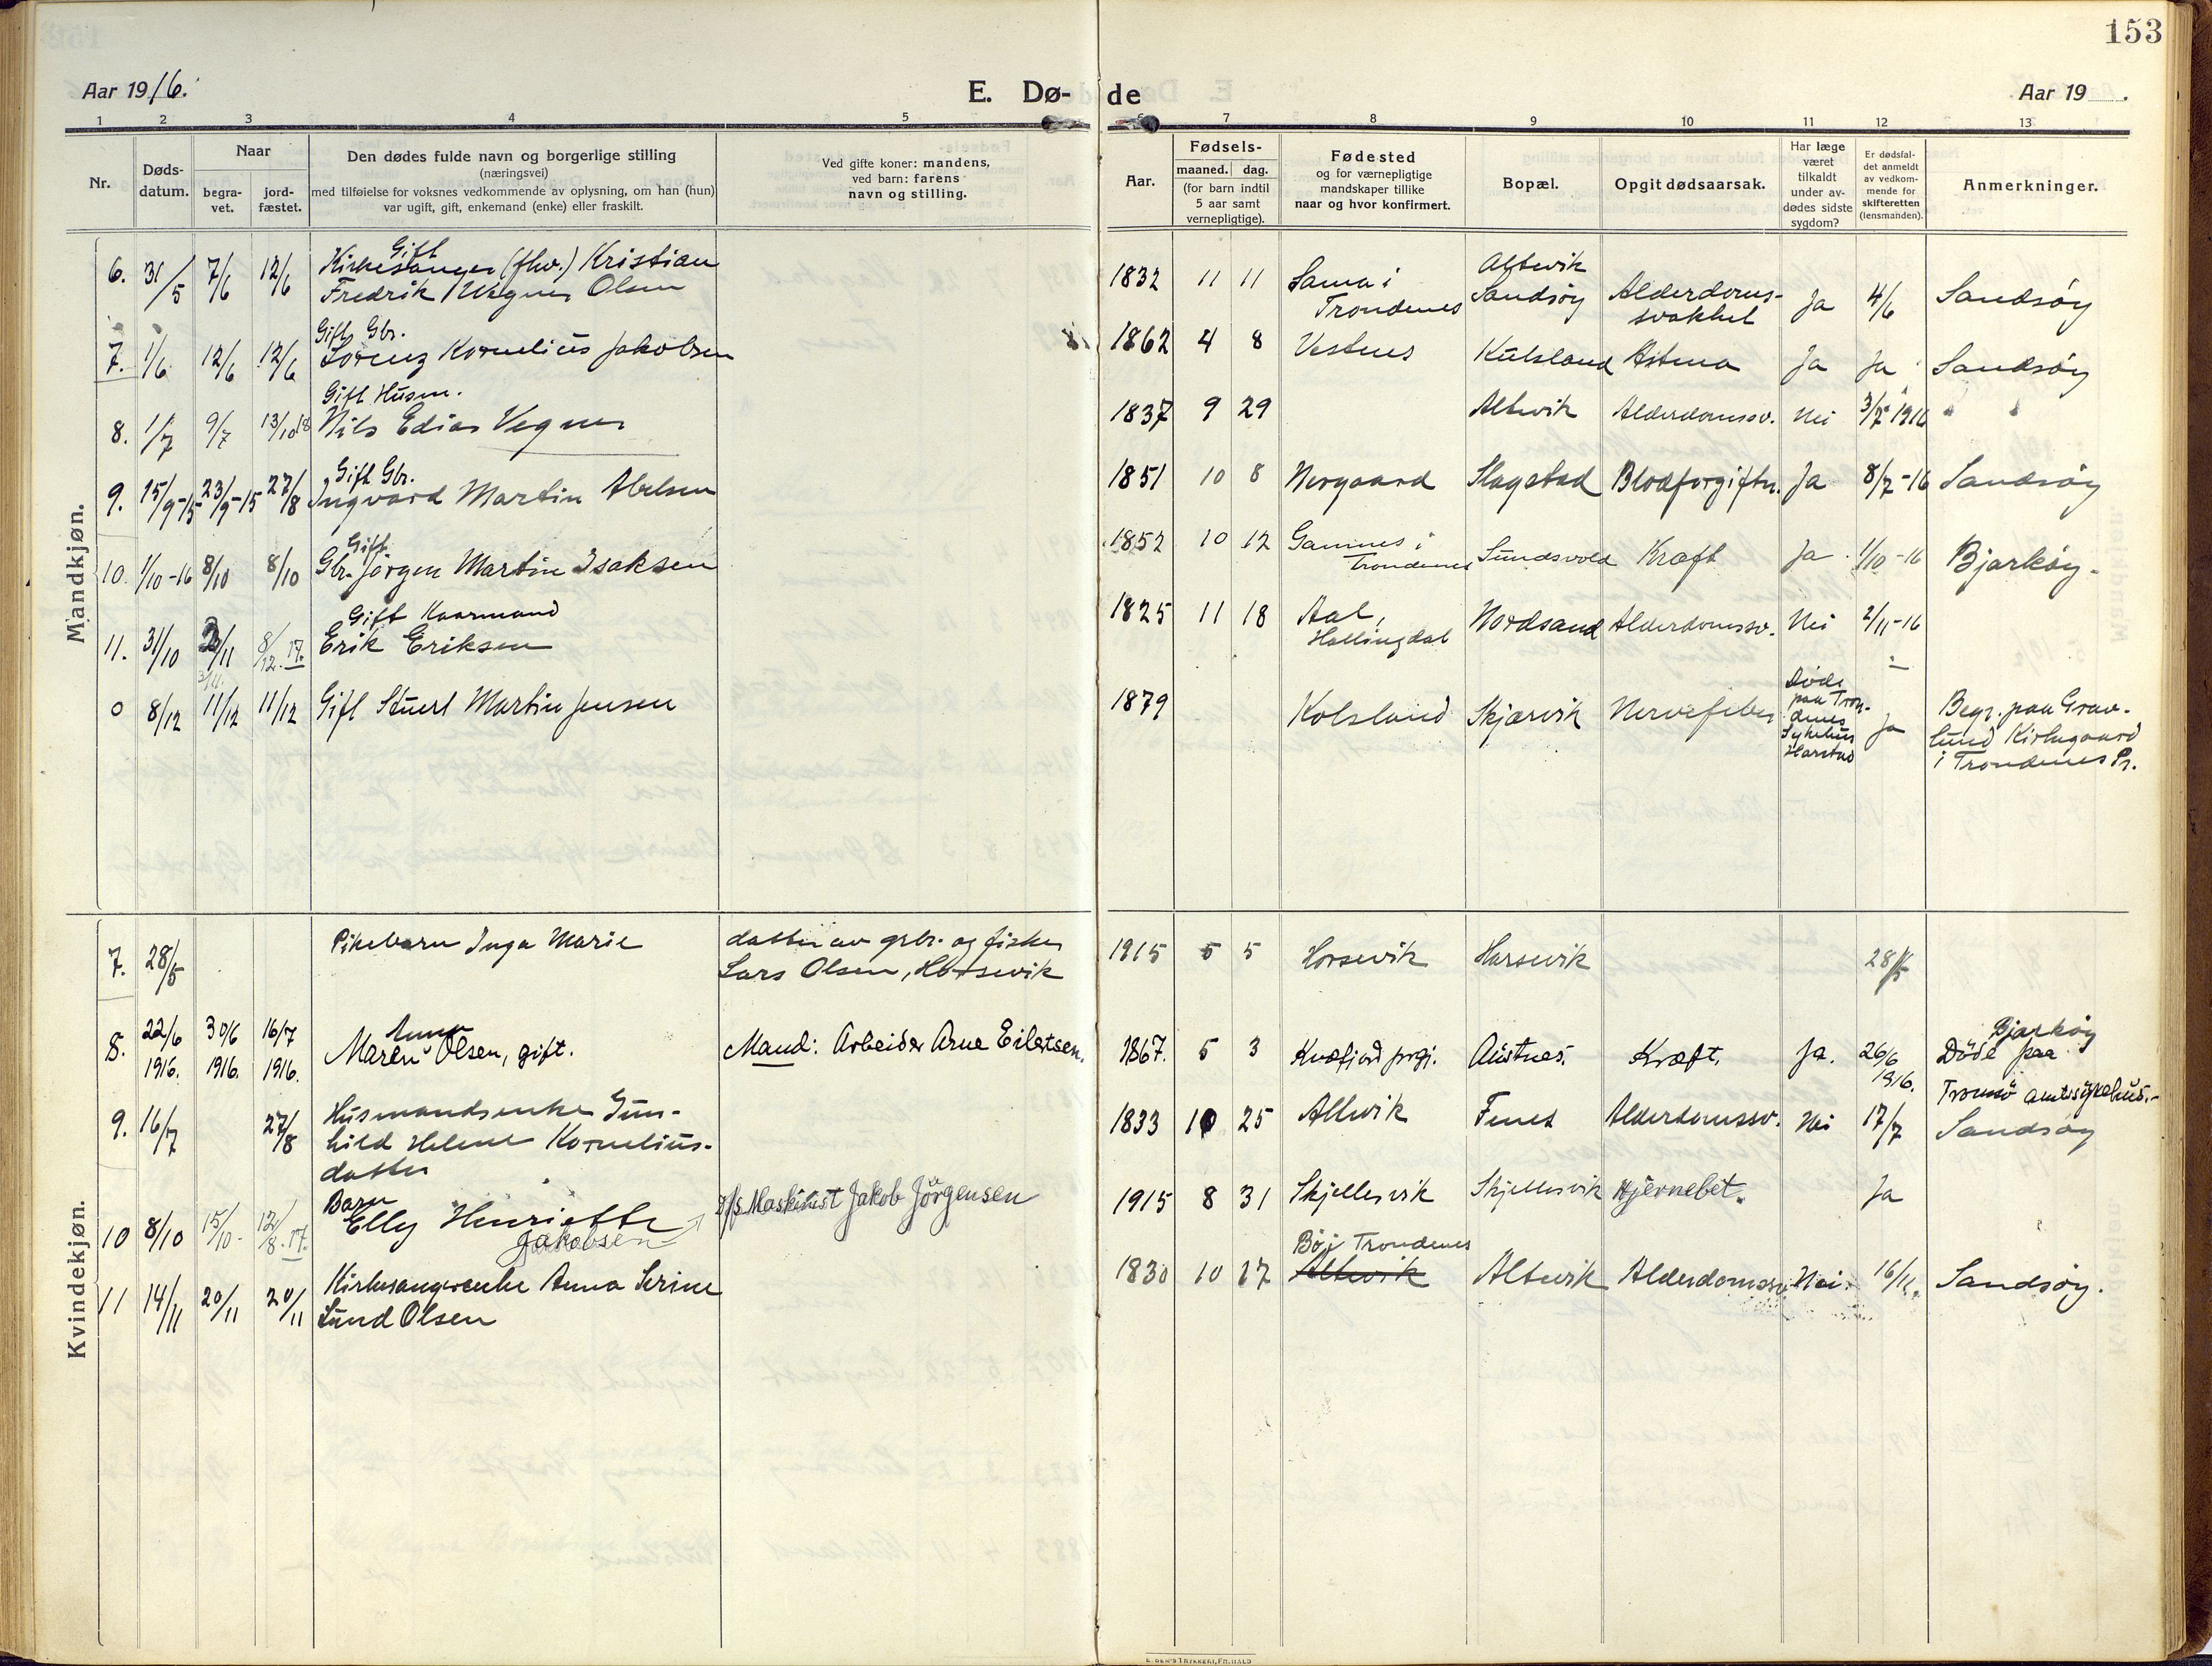 153
Aar 1916.
E. Dø-de
Aar 19 .
1 2 3 4 5 6 7 8 9 10 11 12 13
Nr.
Døds-
datum.
Naar
begra-
vet.
jord-
fæstet.
Den dødes fulde navn og borgerlige stilling
(næringsvei)
med tilføielse for voksnes vedkommende av oplysning, om han (hun)
var ugift, gift, enkemand (enke) eller fraskilt.
Ved gifte koner: mandens,
ved barn: farens
navn og stilling.
Aar.
Fødsels-
maaned. dag.
(for barn indtil
5 aar samt
vernepligtige).
Fødested
og for værnepligtige
mandskaper tillike
naar og hvor konfirmert.
Bopæl.
Opgit dødsaarsak.
Har læge
været
tilkaldt
under av-
dødes sidste
sygdom?
Er dødsfal-
det anmeldt
av vedkom-
mende for
skifteretten
(lensmanden).
Anmerkninger.
Mandkjøn.
Gift
6. 31/5 7/6 12/6 Kirkesanger (fhv.) Kristian
Fredrik Wegner Olsen
1832 11 11 Sama i
Trondenes
Altevik
Sandsøy
Alderdoms-
svakhet
Ja 4/6 Sandsøy
Gift Gbr.
7. 1/6 12/6 12/6 Lorenz Kornelius Jakobsen
1862 4 8 Vestnes Kulsland Astma Ja Ja Sandsøy
Gift Husm.
8. 1/7 9/7 13/10 18 Nils Edias Vegner
1837 9 29 Altevik Alderdomssv. Nei 3/7 1916 " "
Gift Gbr.
9. 15/9-15 23/9-15 27/8 Ingvard Martin Abelsen
1851 10 8 Norgaard Slagstad Blodforgiftn. Ja 8/7-16 Sandsøy
Gift
10. 1/10-16 8/10 8/10 Gbr. Jörgen Martin Isaksen
1852 10 12 Gamnes i
Trondenes
Sundsvold Kræft Ja 1/10-16 Bjarköy.
Gift Kaarmand
11. 31/10 3/11 8/12. 17. Erik Eriksen
1825 11 18 Aal,
Hallingdal
Nordsand Alderdomssv. Nei 2/11-16
0 8/12 11/12 11/12 Gift Stuert Martin Jensen
1879 Kolsland Skjærvik Nervefeber
Døde
paa Tron-
denes
Sykehus
Harstad
Ja
Begr. paa Grav-
lund Kirkegaard
i Trondenes Pr.
Kvindekjøn.
7. 28/5 Pikebarn Inga Marie
datter av grbr. og fisker
Lars Olsen, Horsevik
1915 5 5 Horsevik Harsevik 28/5
8. 22/6 1916. 30/6 1916. 16/7 1916.
Anna
Maren Olsen, gift.
Mand: Arbeider Arne Eilertsen.
1867. 5 3 Kvæfjord prgj. Austnes. Kræft. Ja. 26/6 1916.
Bjarköy
Döde paa
Tromsö amtssykehus.
9. 16/7 27/8 Husmandsenke Gun-
hild Helene Kornelius-
datter
1833 10 25 Altevik Fenes Alderdomssv. Nei 17/7 Sandsøy
Barn
10 8/10 15/10 12/8. 17. Elly Henriette
Jakobsen
D/S Maskinist Jakob Jörgensen
1915 8 31 Skjellesvik Skjellesvik Hjernebet. Ja
11 14/11 20/11 20/11 Kirkesangerenke Anna Serine
Lund Olsen
1830 10 27 Bø i Trondenes
Altevik
Altevik Alderdomssv. Nei. 16/11. Sandsøy.